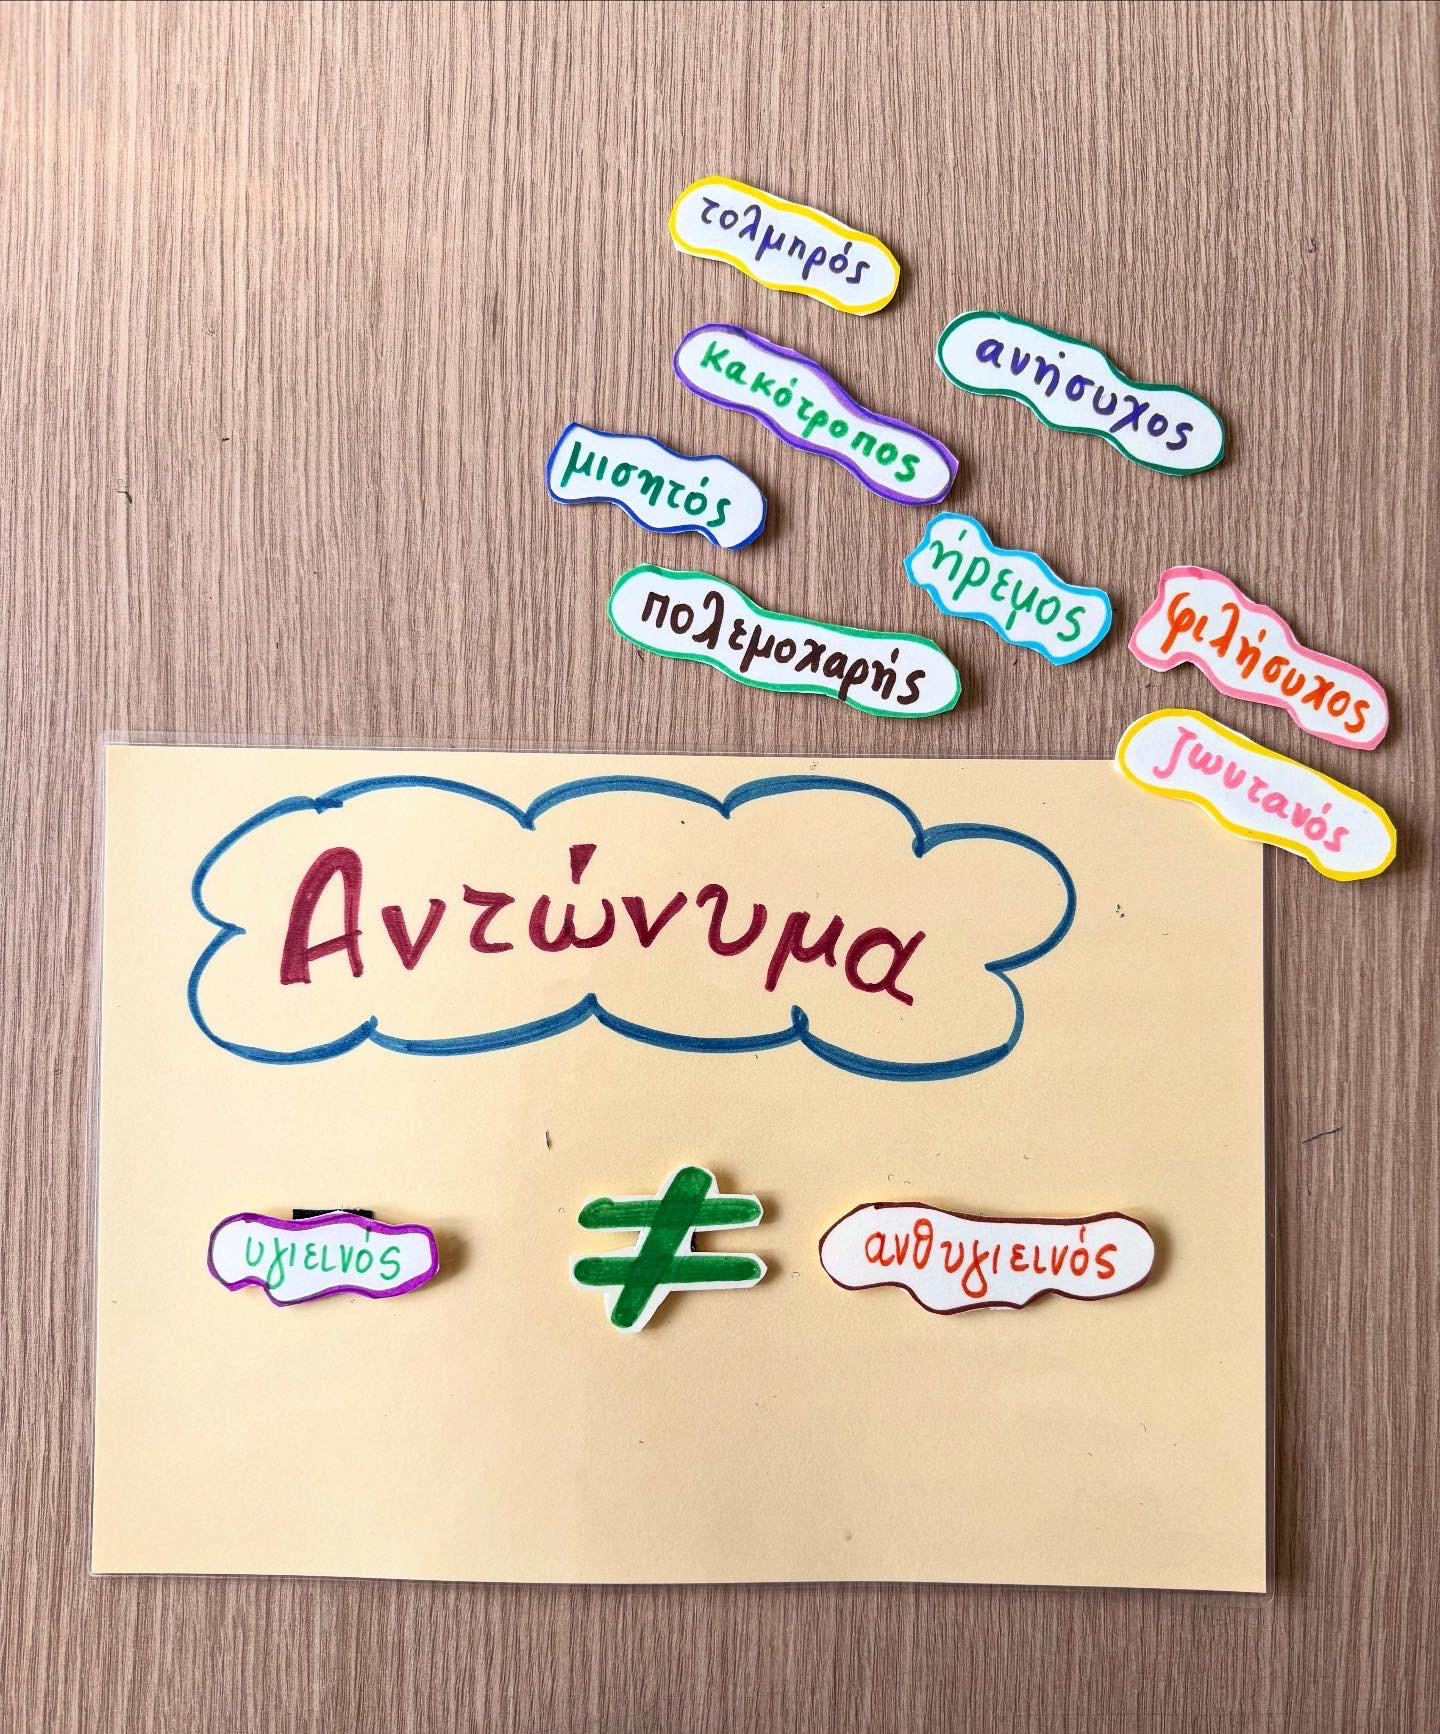 τολμηρός
ανήσυχος
κακότροπος
μισητός
ήρεμος
φιλήσυχος
πολεμοχαρής
ζωντανός
Αντώνυμα
υγιεινός ≠ ανθυγιεινός